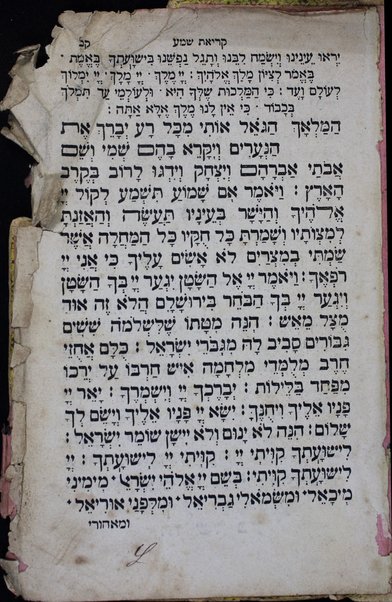 קריאת שמע קכ
יראו עֵינֵינוּ וְיִשְׂמַח לִבֵּנוּ וְתָגֵל נַפְשֵׁנוּ בִּישׁוּעָתְךָ בֶּאֱמֶת ·
בֶּאֱמֹר לְצִיּוֹן מָלַךְ אֱלֹהָיִךְ : יְיָ מֶלֶךְ · יְיָ מָלָךְ · יְיָ יִמְלוֹךְ
לְעוֹלָם וָעֶד : כִּי הַמַּלְכוּת שֶׁלְּךָ הִיא · וּלְעוֹלְמֵי עַד תִּמְלֹךְ
בְּכָבוֹד · כִּי אֵין לָנוּ מֶלֶךְ אֶלָּא אָתָּה :
הַמַּלְאָךְ הַגֹּאֵל אוֹתִי מִכָּל רָע יְבָרֵךְ אֶת
הַנְּעָרִים וְיִקָּרֵא בָהֶם שְׁמִי וְשֵׁם
אֲבֹתַי אַבְרָהָם וְיִצְחָק וְיִדְגּוּ לָרוֹב בְּקֶרֶב
הָאָרֶץ : וַיֹּאמֶר אִם שָׁמוֹעַ תִּשְׁמַע לְקוֹל יְיָ
אֱלֹהֶיךָ וְהַיָּשָׁר בְּעֵינָיו תַּעֲשֶׂה וְהַאֲזַנְתָּ
לְמִצְוֹתָיו וְשָׁמַרְתָּ כָּל חֻקָּיו כָּל הַמַּחֲלָה אֲשֶׁר
שַׂמְתִּי בְמִצְרַיִם לֹא אָשִׂים עָלֶיךָ כִּי אֲנִי יְיָ
רֹפְאֶךָ : וַיֹּאמֶר יְיָ אֶל הַשָּׂטָן יִגְעַר יְיָ בְּךָ הַשָּׂטָן
וְיִגְעַר יְיָ בְּךָ הַבֹּחֵר בִּירוּשָׁלָםִ הֲלֹא זֶה אוּד
מֻצָּל מֵאֵשׁ : הִנֵּה מִטָּתוֹ שֶׁלִּשְׁלֹמֹה שִׁשִּׁים
גִּבּוֹרִים סָבִיב לָהּ מִגִּבֹּרֵי יִשְׂרָאֵל : כֻּלָּם אֲחֻזֵי
חֶרֶב מְלֻמְּדֵי מִלְחָמָה אִישׁ חַרְבּוֹ עַל יְרֵכוֹ
מִפַּחַד בַּלֵּילוֹת : יְבָרֶכְךָ יְיָ וְיִשְׁמְרֶךָ : יָאֵר יְיָ
פָּנָיו אֵלֶיךָ וִיחֻנֶּךָּ : יִשָּׂא יְיָ פָּנָיו אֵלֶיךָ וְיָשֵׂם לְךָ
שָׁלוֹם : הִנֵּה לֹא יָנוּם וְלֹא יִישָׁן שׁוֹמֵר יִשְׂרָאֵל :
לִישׁוּעָתְךָ קִוִּיתִי יְיָ : קִוִּיתִי יְיָ לִישׁוּעָתְךָ : יְיָ
לִישׁוּעָתְךָ קִוִּיתִי : בְּשֵׁם יְיָ אֱלֹהֵי יִשְׂרָאֵל · מִימִינִי
מִיכָאֵל · וּמִשְּׂמֹאלִי גַּבְרִיאֵל · וּמִלְּפָנַי אוּרִיאֵל ·
ומאחורי